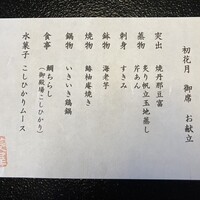 初花月 御席 お献立
突出 焼丹那豆富
蒸物 炙り帆立玉地蒸し
芹あん
刺身 すきみ
鉢物 海老芋
焼物 鰆柚庵焼き
鍋物 いきいき鶏鍋
食事 鯛ちらし
(御殿場こしひかり)
水菓子 こしひかりムース